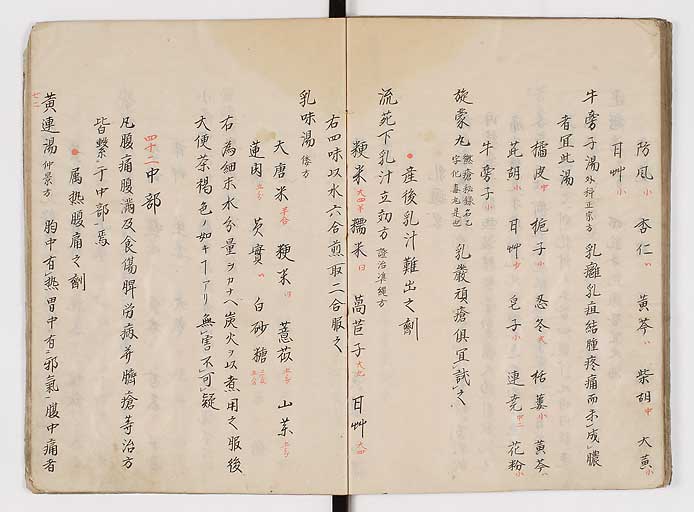 防風小 杏仁〃 黄芩〃 柴胡中 大黄小
甘艸小
牛旁子湯外科正宗方 乳癰乳疽結腫疼痛而未成膿
者宜此湯
橘皮中 梔子小 忍冬大 栝蔞小 黄芩〃
芘胡小 甘艸少 皂子小 連壳中二 花粉小
牛旁子小
旋蒙丸黴瘡秘録名乙字化毒丸是也 乳嚴頑瘡俱宜試之
●産後乳汁難出之劑
流苑下乳汁立効方證治準繩方
粳米大四半 糯米〃 萵苣子大九 甘艸大四
右四味以水六合煎取二合服之
乳味湯 傣方
大唐米半合 粳米〃 薏苡五勺 山薬五勺
蓮肉五分 芡實〃 白砂糖
右為細末水分量ヲカナヘ炭火ヲ以煮用之服後
大便茶褐色ノ如キ〃アリ無害不可疑
四十二中部
凡腹痛腹満及食傷脾労病并臍瘡等治方
皆繫于中部焉
●属熱腹痛之劑
黄連湯仲景方 胸中有熱胃中有邪氣腹中痛者
七二